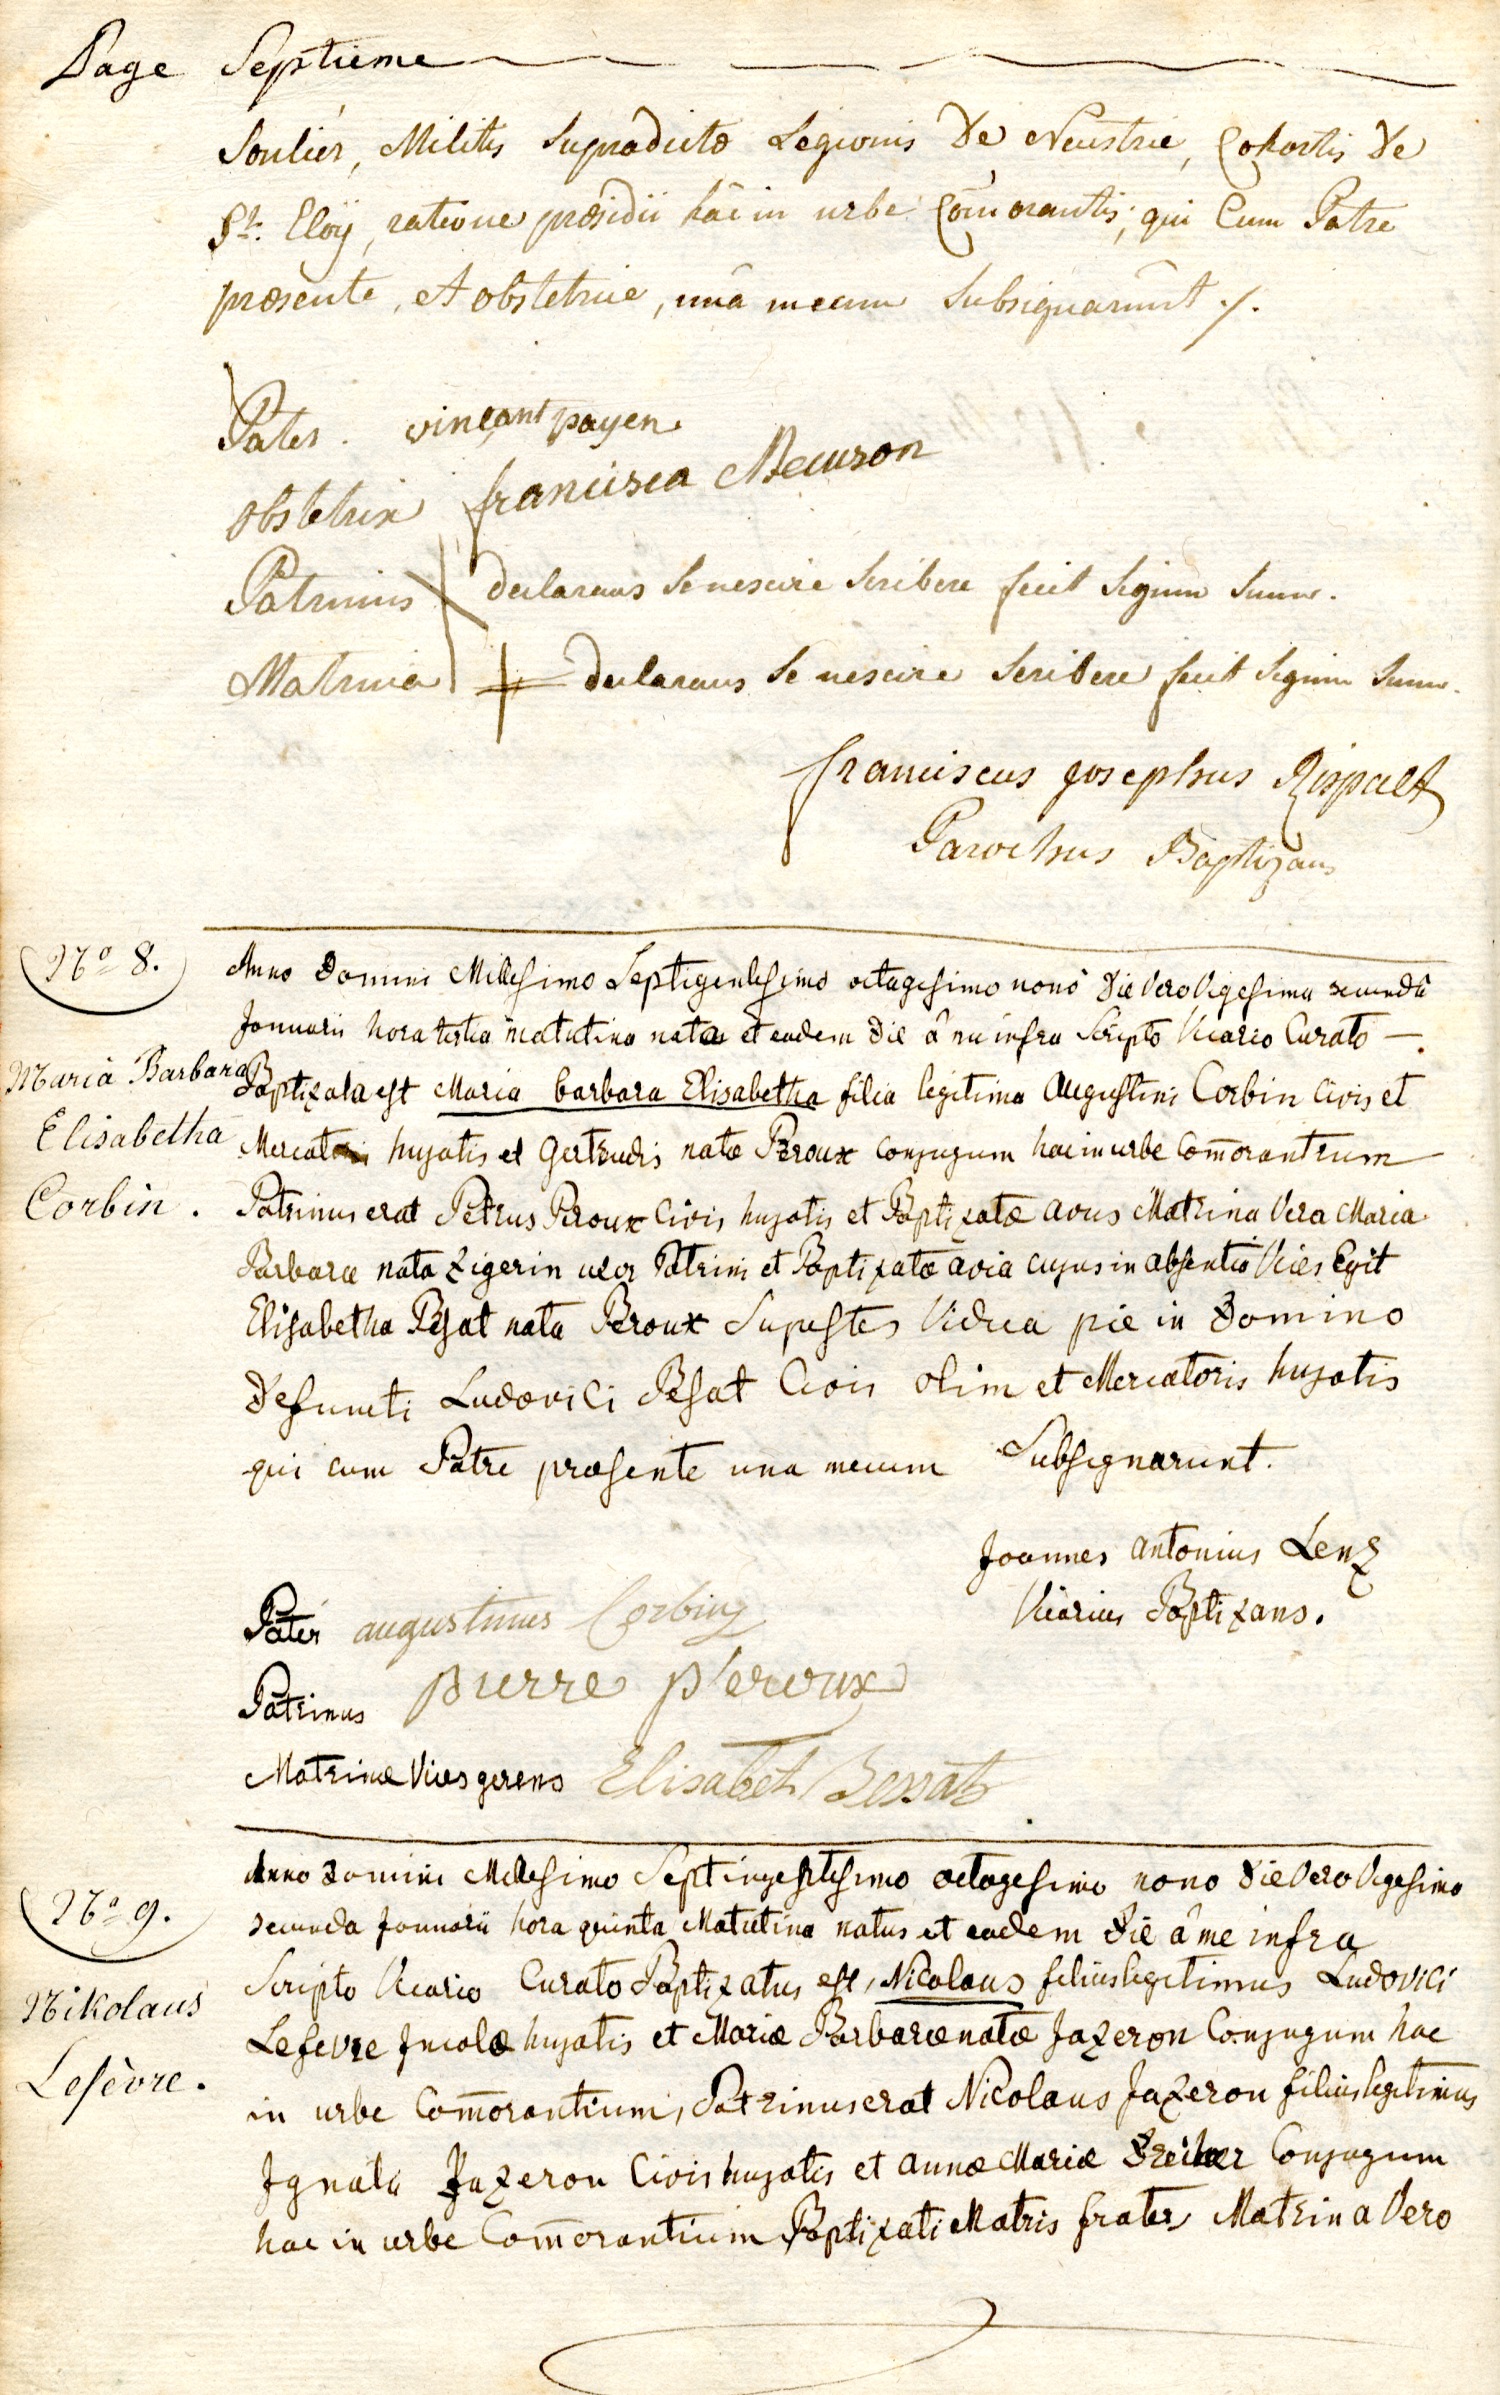 Page Septieme
Soulier, Militis Supradictæ Legionis De Neustrie, Cohortis De
St. Eloÿ, ratione præsidii hâc in urbe Com̄orantis; qui Cum Patre
præsente, et obstetrice, unâ mecum Subsignarûnt ./.
Pater. vinçant payen
Obstetrix francisca Mecuson
Patrinus declarans Se nescire Scribere fecit Signum Suum.
Matrina declarans Se nescire Scribere fecit Signum Suum.
franciscus josephus Rispalt
Parochus Baptizans
No 8.
Maria Barbara
Elisabetha
Corbin.
Anno Domini Millesimo Septigentesimo octagesimo nono Die Vero Vigesima secundâ
Januarii hora tertia matutina nata et eadem Die â me infra Scripto Vicario Curato —.
Baptizata est Maria barbara Elisabetha filia legitima Augustini Corbin Civis et
Mercatori hujatis et Gertrudis natæ Peroux Conjugum hac in urbe Com̄orantium
Patrinus erat Petrus Peroux Civis hujatis et Baptizatæ avus Matrina Vera Maria
Barbara nata Zigerin uxor Patrini et Baptizatæ avia cujus in absentia Vices Egit
Elisabetha Besat nata Peroux Supestes Vidua pie in Domino
Defuncti Ludovici Besat Civis olim et Mercatoris hujatis
qui cum Patre præsente una mecum Subsignarunt.
Joannes Antonius Lenz
Vicarius Baptizans.
Pater augustinus Corbin
Patrinus pierre peroux
Matrinæ Vices gerens Elisabeth Bessat
No 9.
Nikolaus
Lefèvre.
Anno Domini Millesimo Septingestesimo octagesimo nono Die Vero Vigesima
secunda Januarii hora quinta Matutina natus et eadem Die â me infra
Scripto Vicario Curato Baptizatus est, Nicolaus filius legitimus Ludovici
Lefevre Incolæ hujatis et Mariæ Barbaræ natæ Jazeron Conjugum hac
in urbe Com̄orantium, Patrinus erat Nicolaus Jazeron filius legitimus
Ignatii Jazeron Civis hujatis et annæ Mariæ Conjugum
hac in urbe Com̄orantium Baptizati Matris frater, Matrina Vero